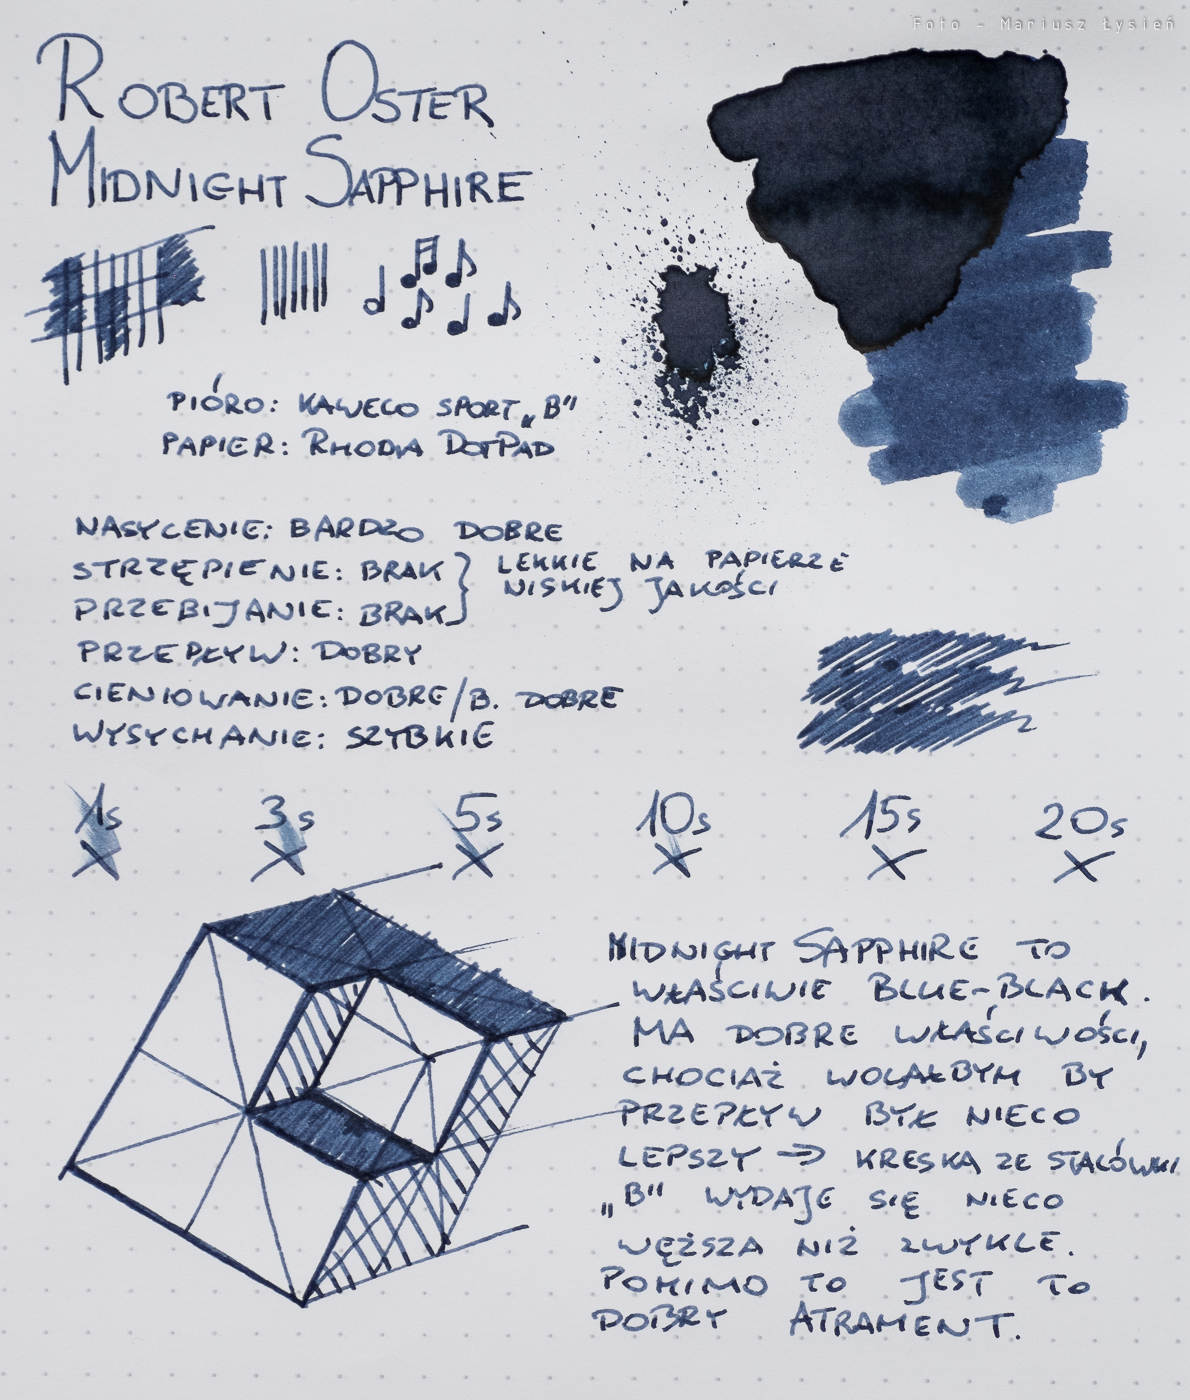 Foto - Mariusz Łysień
ROBERT OSTER
MIDNIGHT SAPPHIRE
PIÓRO: KAWECO SPORT „B”
PAPIER: RHODIA DOTPAD
NASYCENIE: BARDZO DOBRE
STRZĘPIENIE: BRAK } LEKKIE NA PAPIERZE
PRZEBIJANIE: BRAK } NISKIEJ JAKOŚCI
PRZEPŁYW: DOBRY
CIENIOWANIE: DOBRE/B. DOBRE
WYSYCHANIE: SZYBKIE
1s 3s 5s 10s 15s 20s
X X X X X X
MIDNIGHT SAPPHIRE TO
WŁAŚCIWIE BLUE-BLACK.
MA DOBRE WŁAŚCIWOŚCI,
CHOCIAŻ WOLAŁBYM BY
PRZEPŁYW BYŁ NIECO
LEPSZY → KRESKA ZE STALÓWKI
„B” WYDAJE SIĘ NIECO
WĘŻSZA NIŻ ZWYKLE.
POMIMO TO JEST TO
DOBRY ATRAMENT.